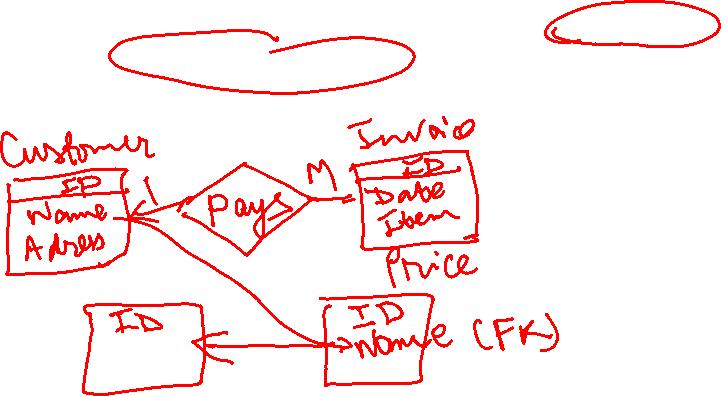 Customer
ID
Name
Adress
1
Pays
M
Invoice
ID
Date
Item
Price
ID
ID
Name (FK)